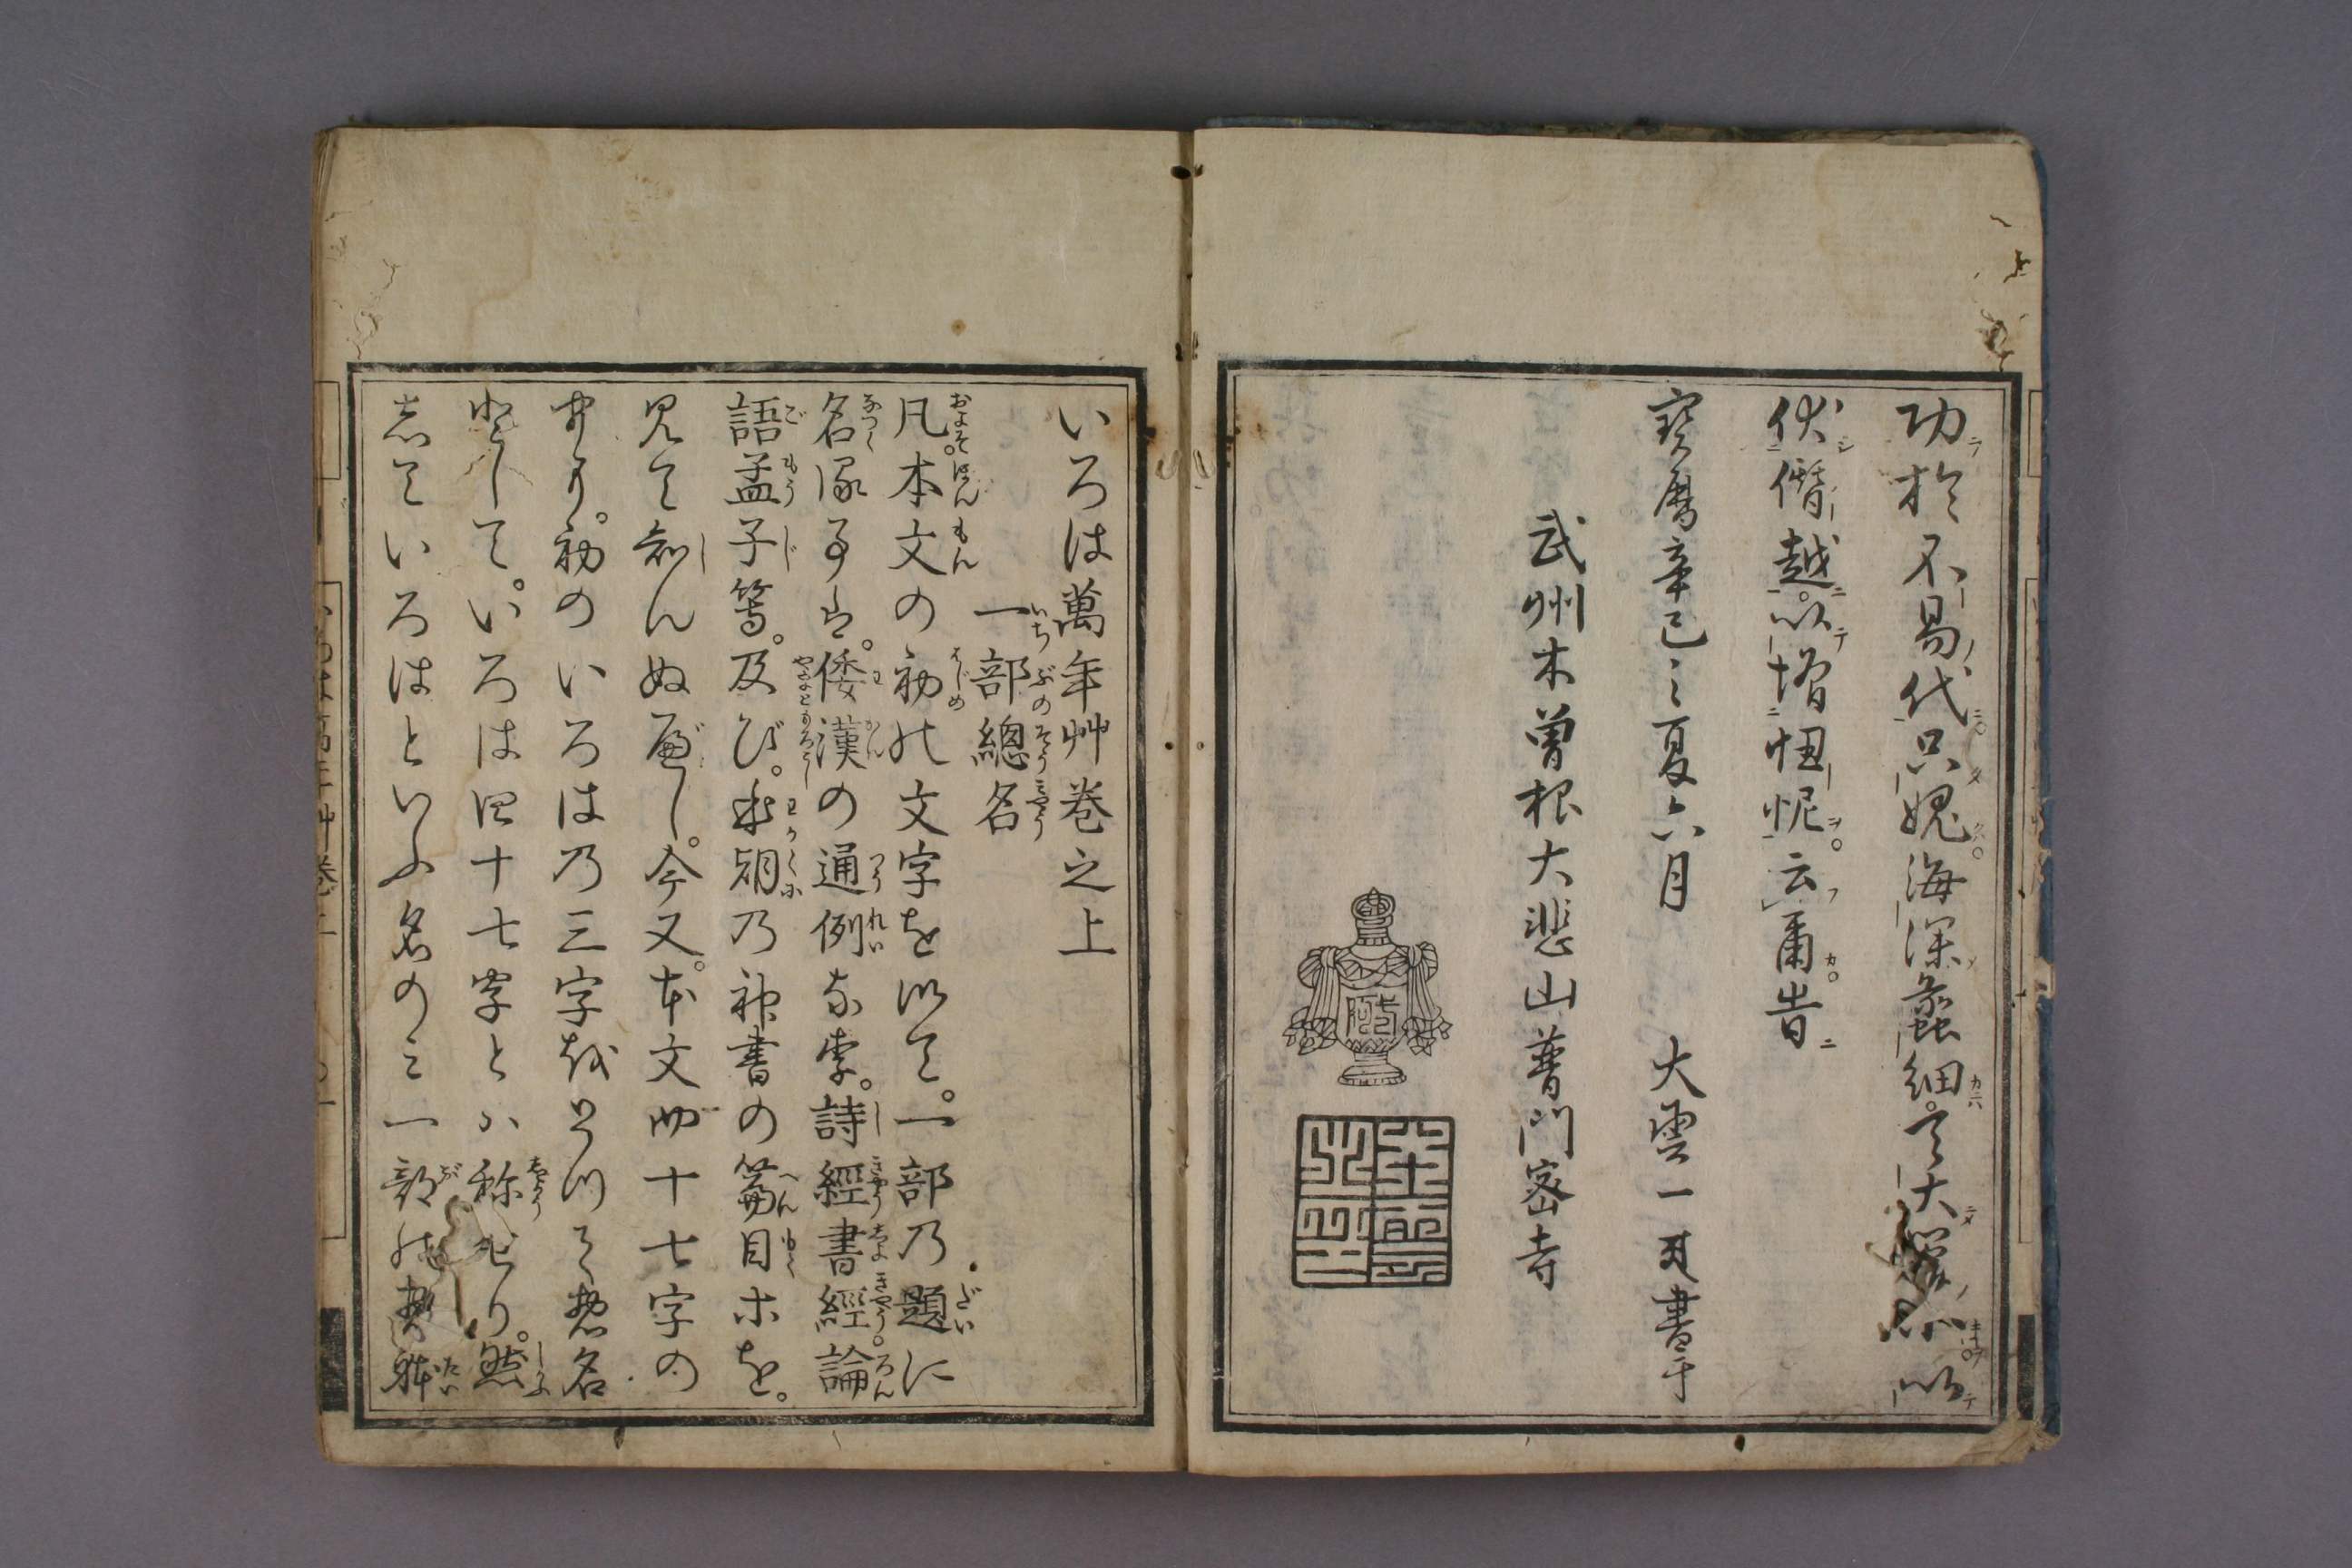 功於不易代只媿海深蠡細言大
以
伏僭越以増忸怩云爾昔
寳暦辛巳之夏六月　大雲一
書于
武州木曽根大悲山普門密寺
いろは萬年艸巻之上
一部總名
凡本文の初の文字を以て一部乃題に
名くる事は倭漢の通例なり詩經書經論
語孟子等及び
乃神書の篇目ホを
見て知んぬべし今又本文四十七字の
中より初のいろは乃三字を
て惣名
として いろは四十七字とハ称せり然
れていろはといふ名のミ一部の
躰